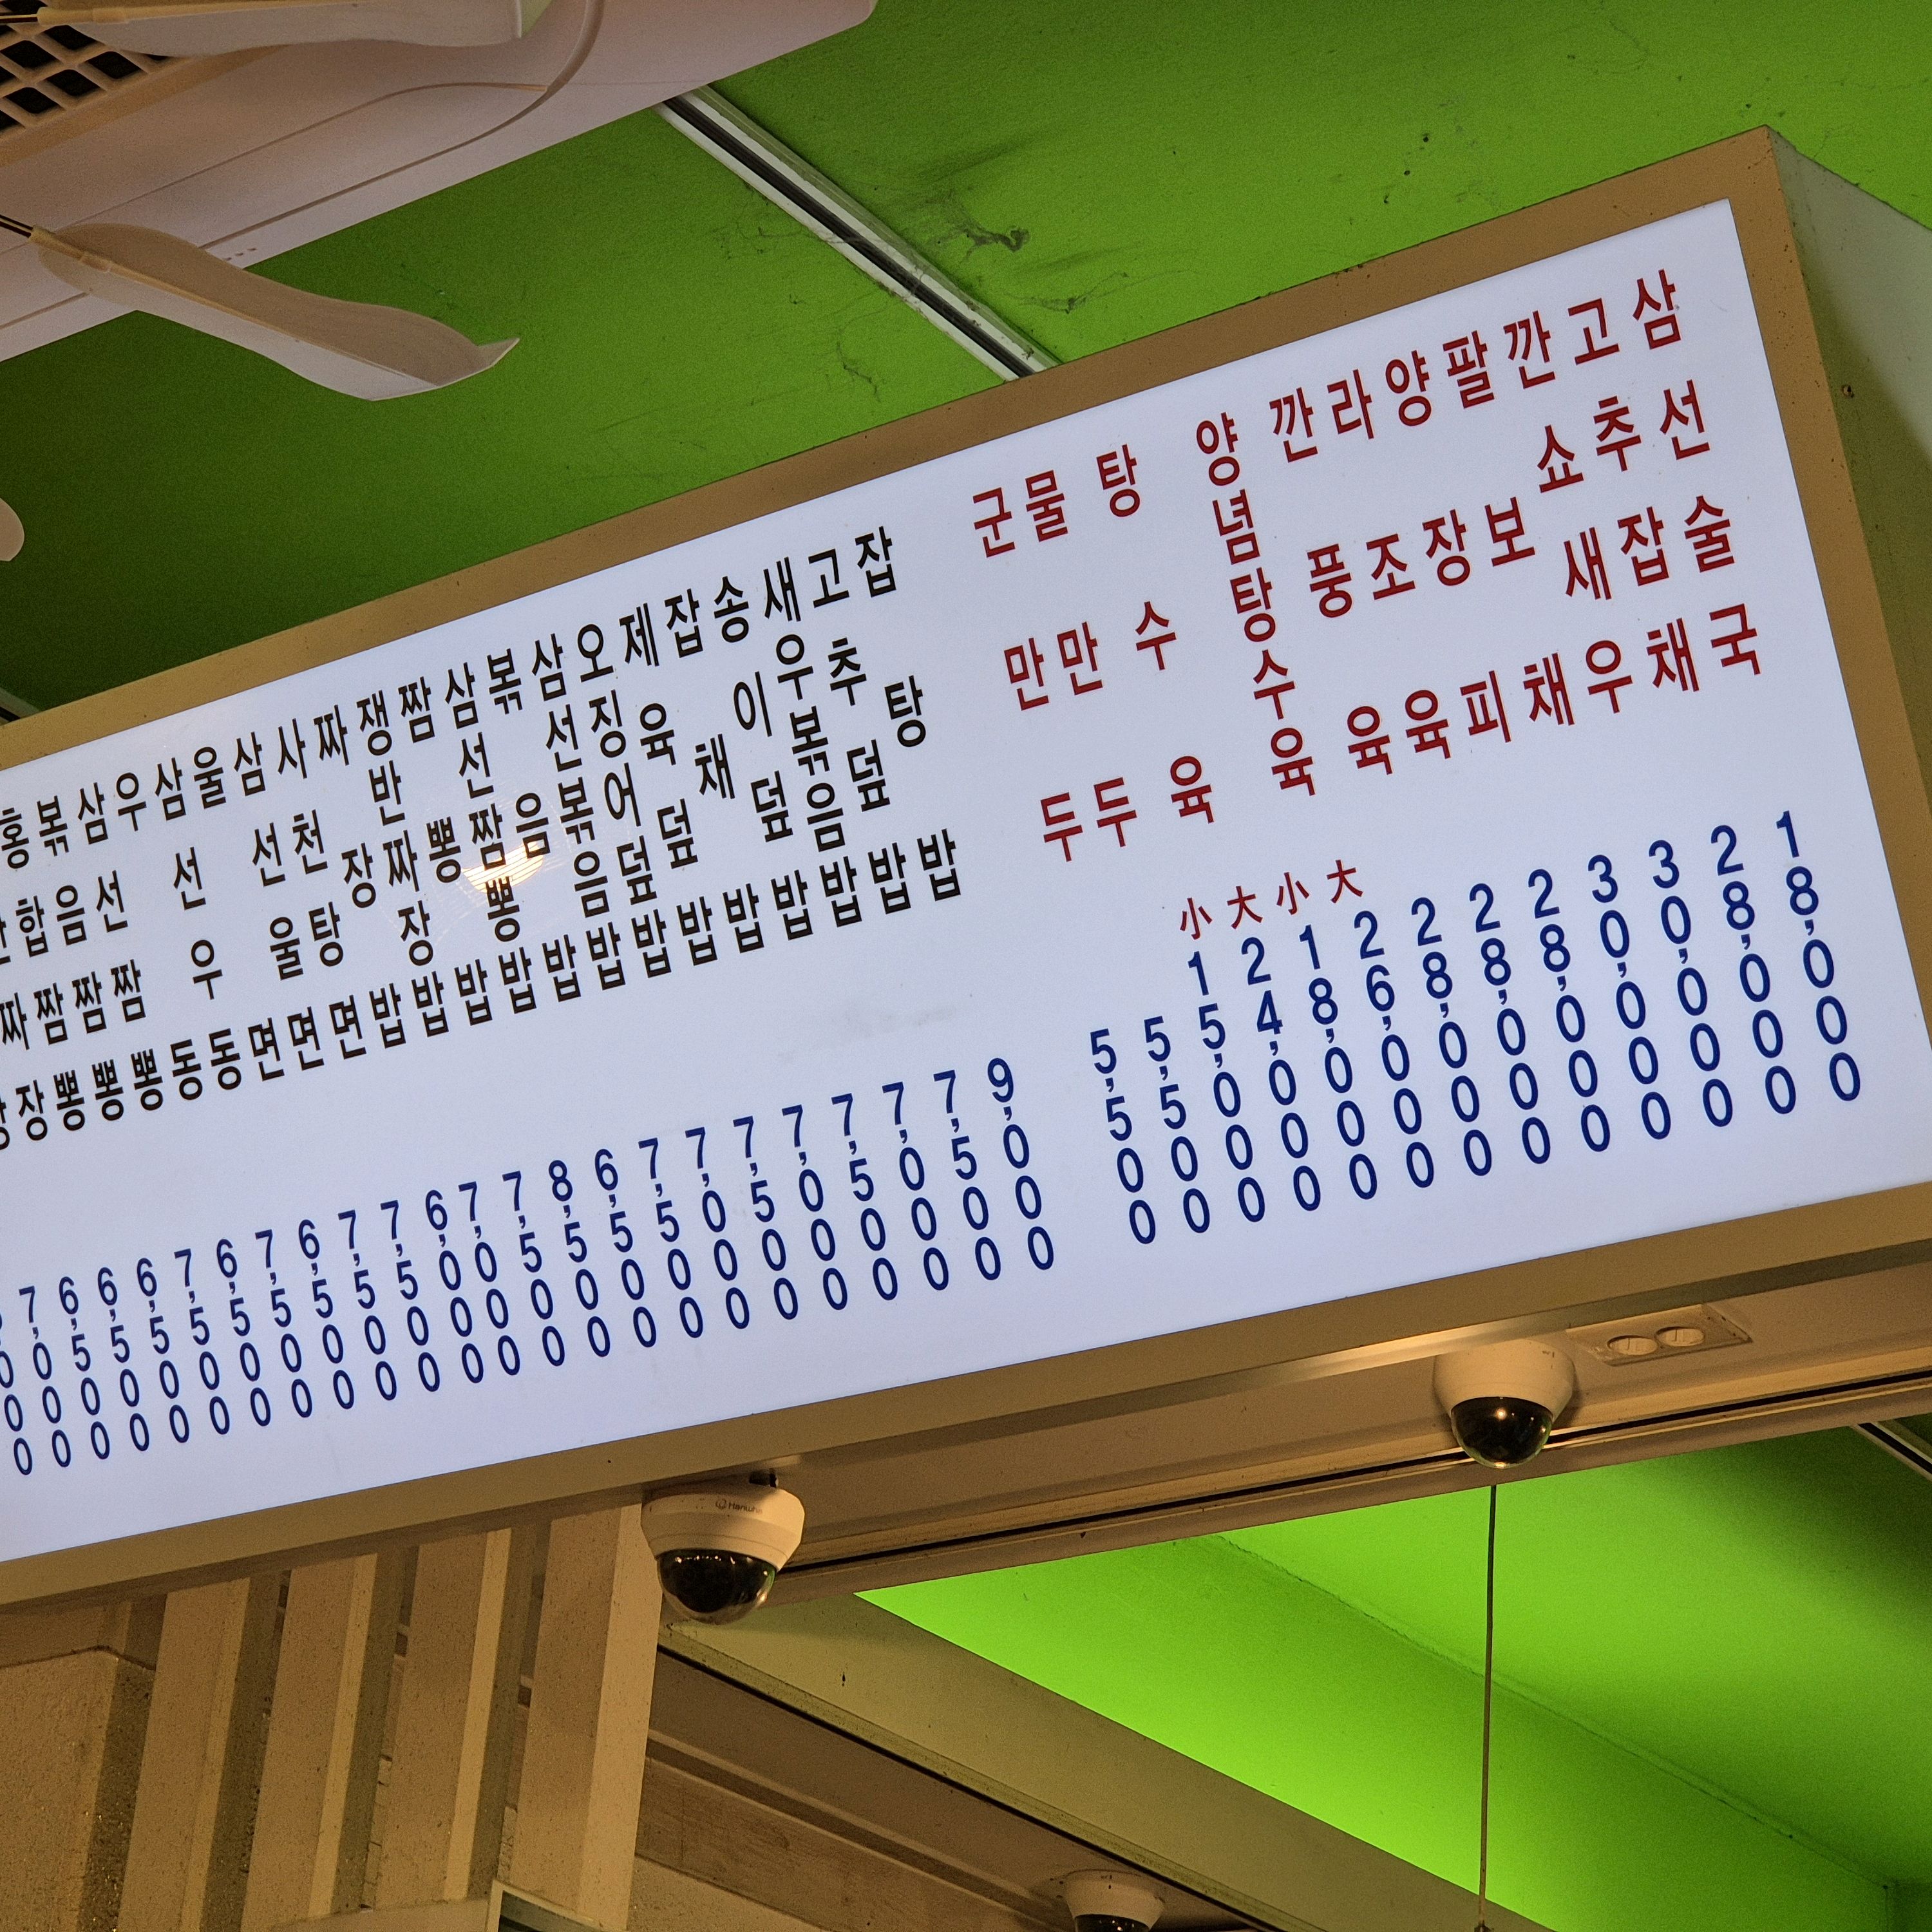 홍합짬뽕 6,500
볶음짬뽕 6,500
삼선짬뽕 7,500
우동 6,500
삼선우동 7,500
울면 6,500
삼선울면 7,500
사천탕면 7,500
짜장밥 6,000
쟁반짜장밥 7,000
짬뽕밥 7,500
삼선짬뽕밥 8,500
볶음밥 6,500
삼선볶음밥 7,500
오징어덮밥 7,000
제육덮밥 7,500
잡채밥 7,000
송이덮밥 7,500
새우볶음밥 7,000
고추덮밥 7,500
잡탕밥 9,000
군만두 5,500
물만두 5,500
탕수육 小 15,000 大 24,000
양념탕수육 小 18,000 大 26,000
깐풍육 28,000
라조육 28,000
양장피 28,000
팔보채 30,000
깐쇼새우 30,000
고추잡채 28,000
삼선술국 18,000